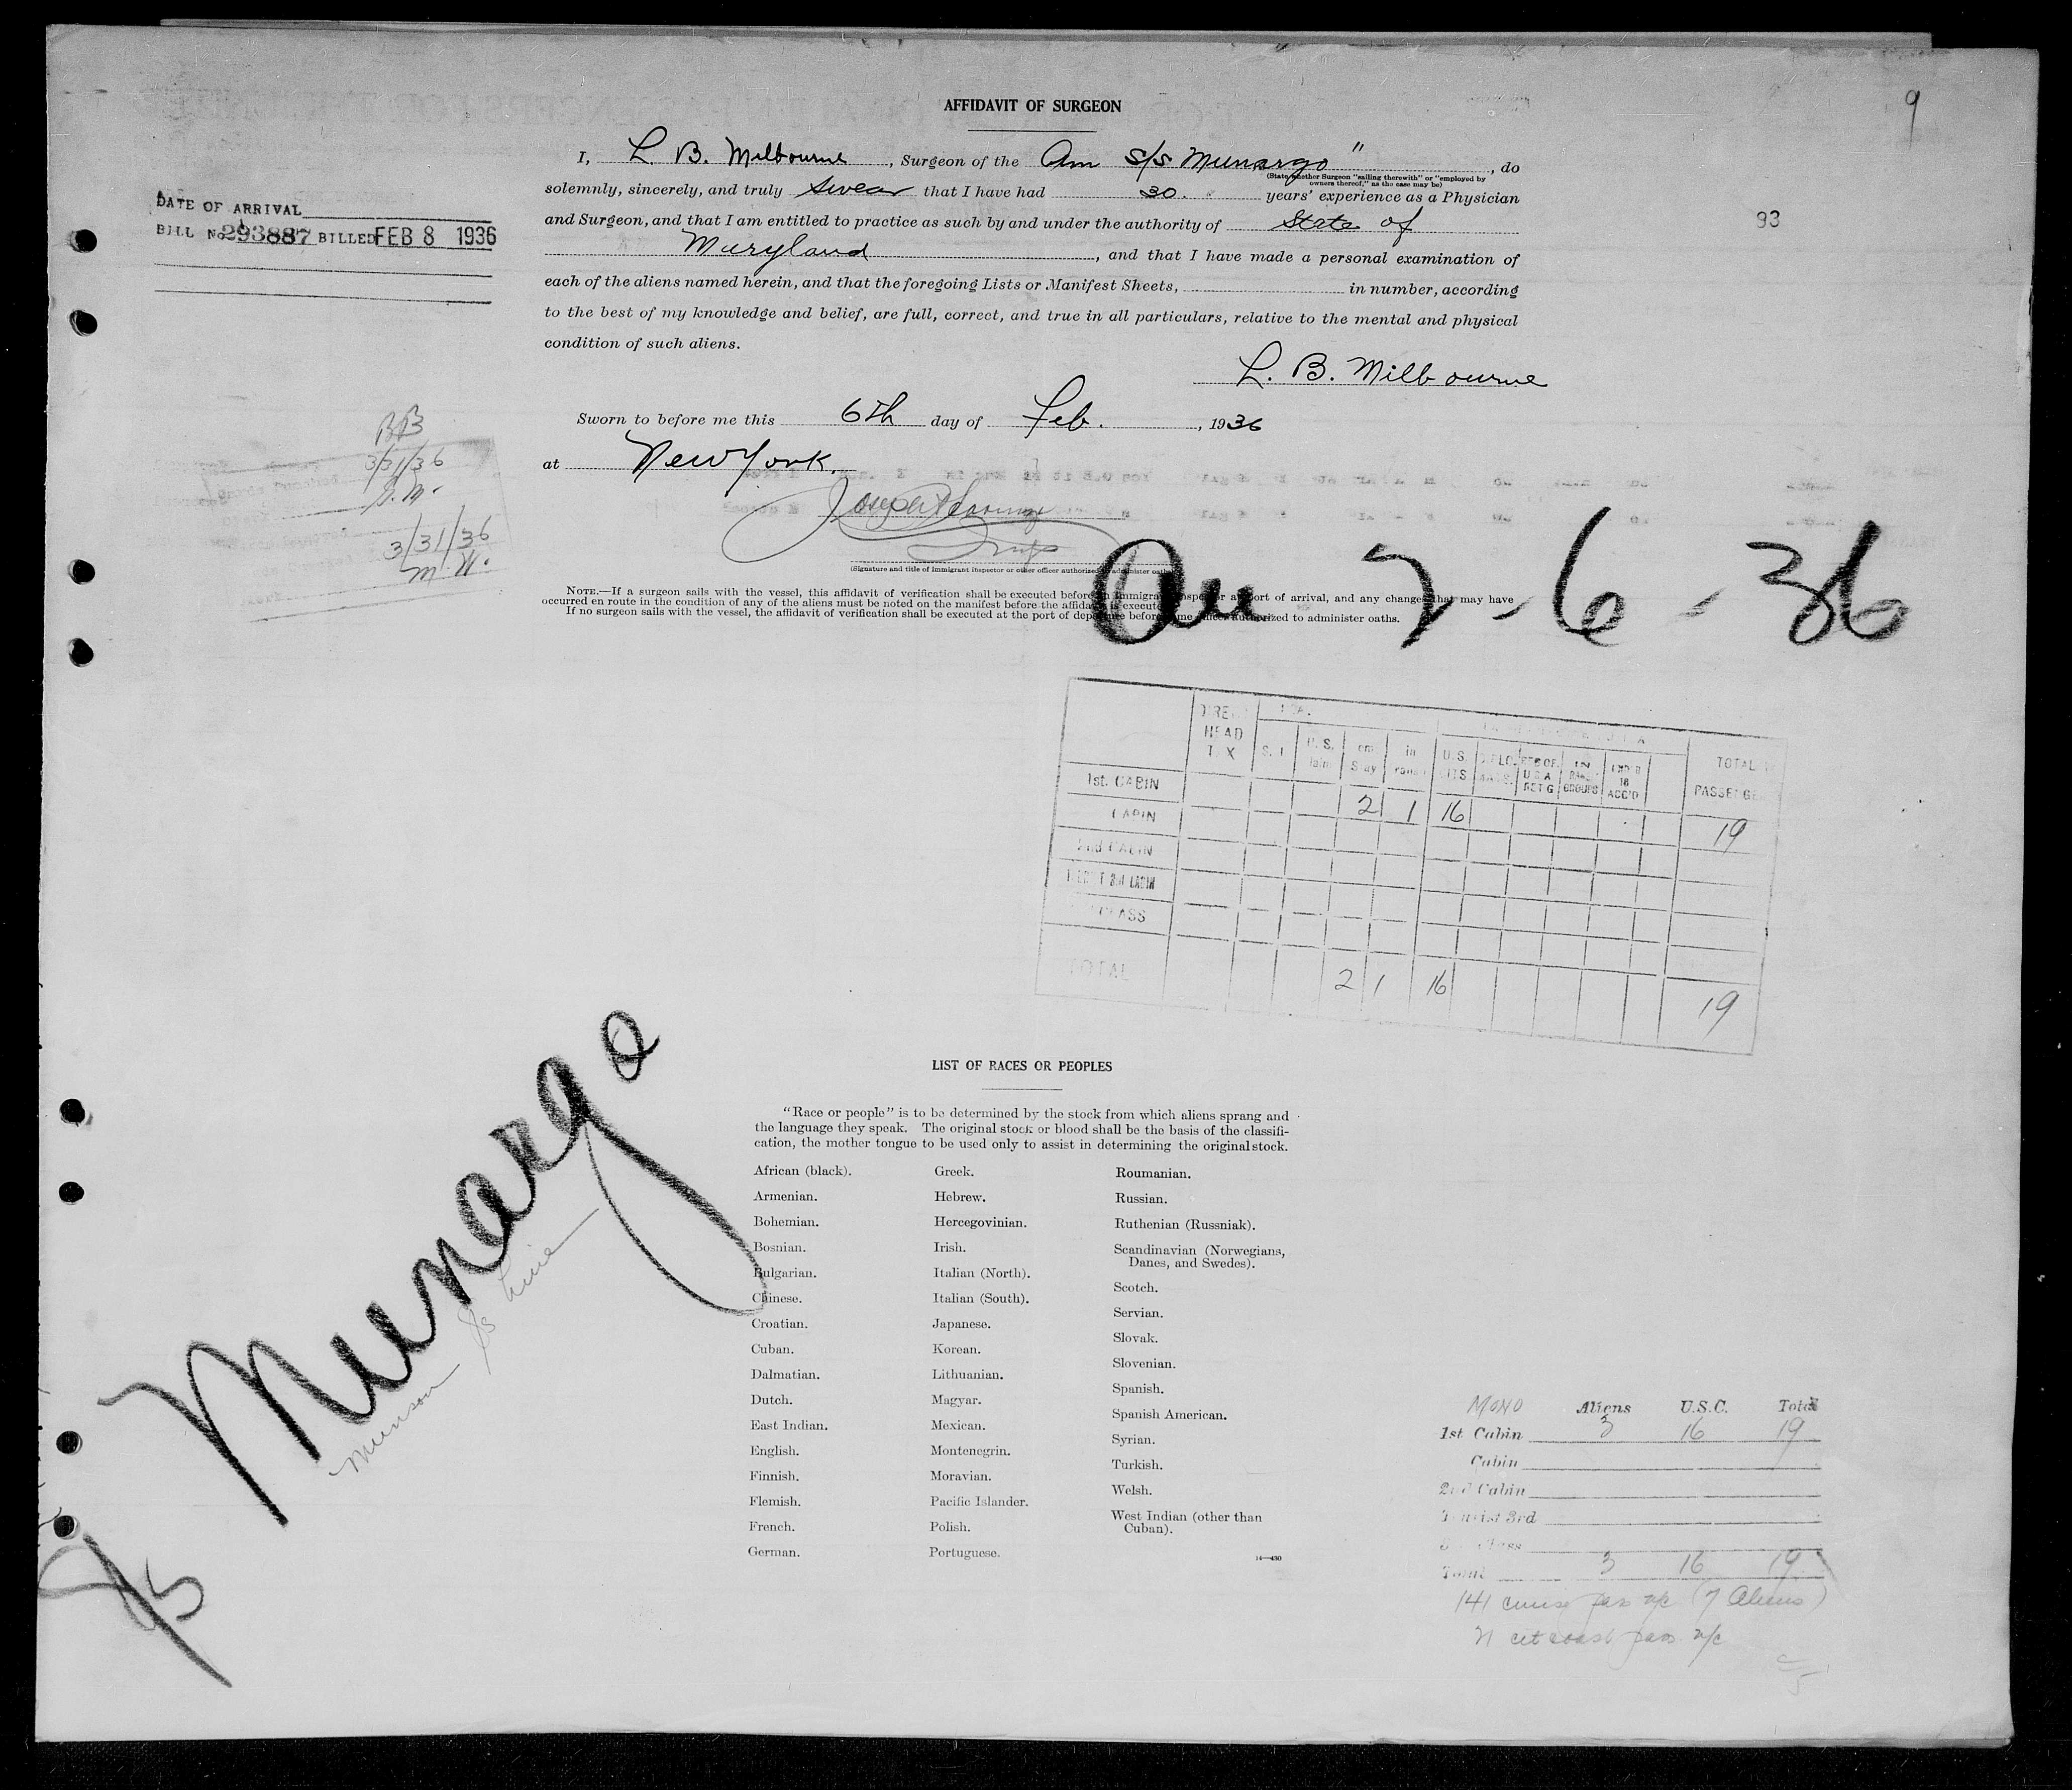 AFFIDAVIT OF SURGEON
9
I, L. B. Milbourne, Surgeon of the Am S/S Munargo", do
(State whether Surgeon "sailing therewith" or "employed by owners thereof," as the case may be)
solemnly, sincerely, and truly swear that I have had 30. years' experience as a Physician
and Surgeon, and that I am entitled to practice as such by and under the authority of State of
Maryland, and that I have made a personal examination of
each of the aliens named herein, and that the foregoing Lists or Manifest Sheets, in number, according
to the best of my knowledge and belief, are full, correct, and true in all particulars, relative to the mental and physical
condition of such aliens.
L. B. Milbourne
Sworn to before me this 6th day of Feb., 1936
at New York.
(Signature and title of immigrant inspector or other officer authorized to administer oaths)
NOTE.—If a surgeon sails with the vessel, this affidavit of verification shall be executed before an immigrant inspector at port of arrival, and any changes that may have
occurred en route in the condition of any of the aliens must be noted on the manifest before the affidavit is executed.
If no surgeon sails with the vessel, the affidavit of verification shall be executed at the port of departure before some officer authorized to administer oaths.
DATE OF ARRIVAL
BILL No. 293887 BILLED FEB 8 1936
93
BB
3/31/36
3/31/36
M.W.
2-6-36
DIRECT HEAD TAX
S. I.
U.S.
in
U.S. CITS
IN
GROUPS
UNDER 16 ACC'D
TOTAL PASSENGERS
1st. CABIN
2 1 16 19
CABIN
2nd CABIN
TOURIST 3rd CABIN
CLASS
TOTAL 2 1 16 19
Munargo
Munson S/S Line
95
LIST OF RACES OR PEOPLES
"Race or people" is to be determined by the stock from which aliens sprang and
the language they speak. The original stock or blood shall be the basis of the classifi-
cation, the mother tongue to be used only to assist in determining the original stock.
African (black).
Armenian.
Bohemian.
Bosnian.
Bulgarian.
Chinese.
Croatian.
Cuban.
Dalmatian.
Dutch.
East Indian.
English.
Finnish.
Flemish.
French.
German.
Greek.
Hebrew.
Hercegovinian.
Irish.
Italian (North).
Italian (South).
Japanese.
Korean.
Lithuanian.
Magyar.
Mexican.
Montenegrin.
Moravian.
Pacific Islander.
Polish.
Portuguese.
Roumanian.
Russian.
Ruthenian (Russniak).
Scandinavian (Norwegians,
Danes, and Swedes).
Scotch.
Servian.
Slovak.
Slovenian.
Spanish.
Spanish American.
Syrian.
Turkish.
Welsh.
West Indian (other than
Cuban).
14—430
Aliens U.S.C. Total
1st Cabin 3 16 19
Cabin
2nd Cabin
Tourist 3rd
Class
Total 3 16 19
141 cruise pass n/c (7 Aliens)
21 cit coast pass n/c